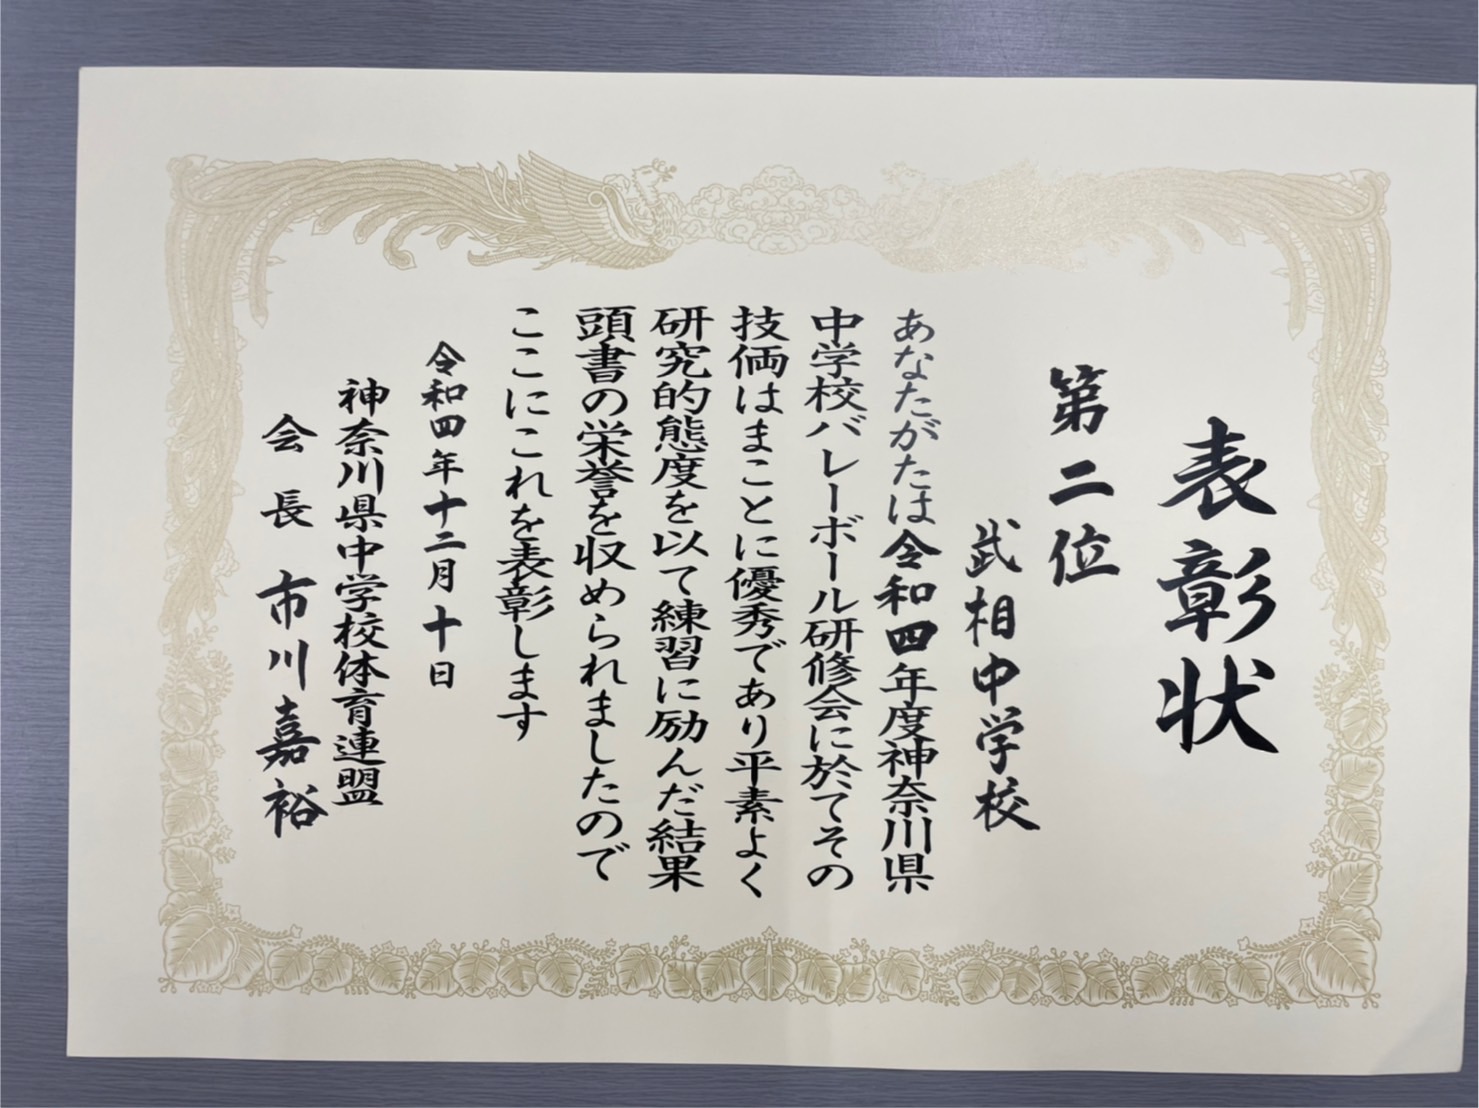 表彰状
第二位
武相中学校
あなたがたは令和四年度神奈川県
中学校バレーボール研修会に於てその
技倆はまことに優秀であり平素よく
研究的態度を以て練習に励んだ結果
頭書の栄誉を収められましたので
ここにこれを表彰します
令和四年十二月十日
神奈川県中学校体育連盟
会長 市川嘉裕